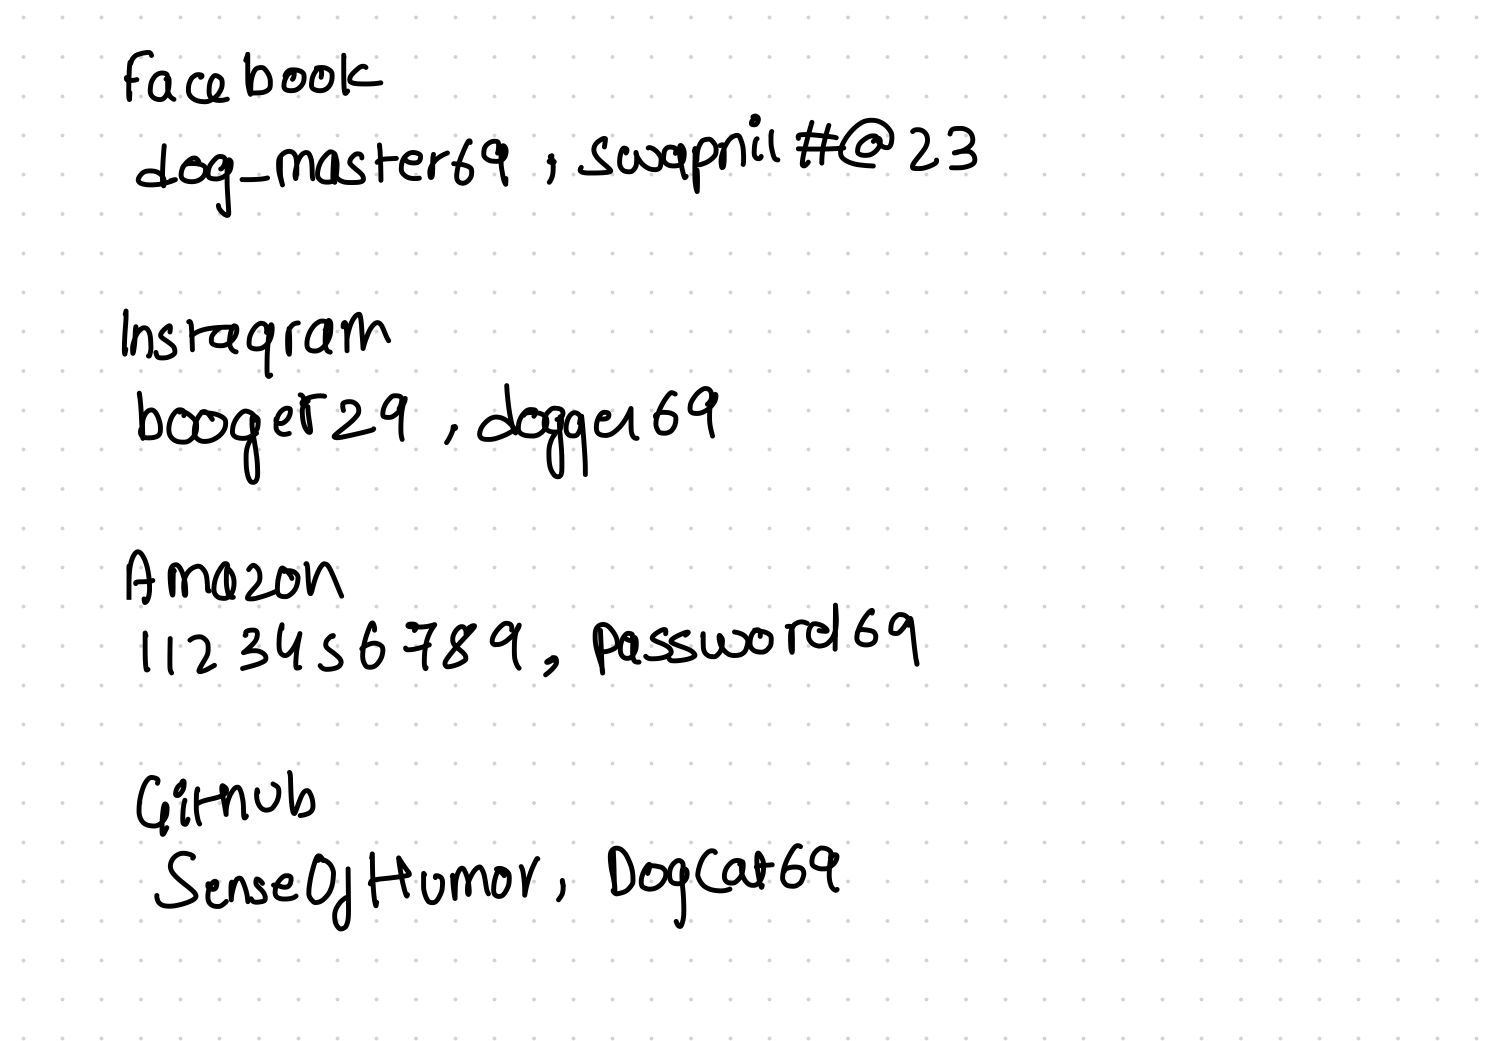 facebook
dog_master69 , swapnil#@23
Instagram
booger29 , dogger69
Amazon
1123456789, password69
Github
SenseOfHumor, DogCat69